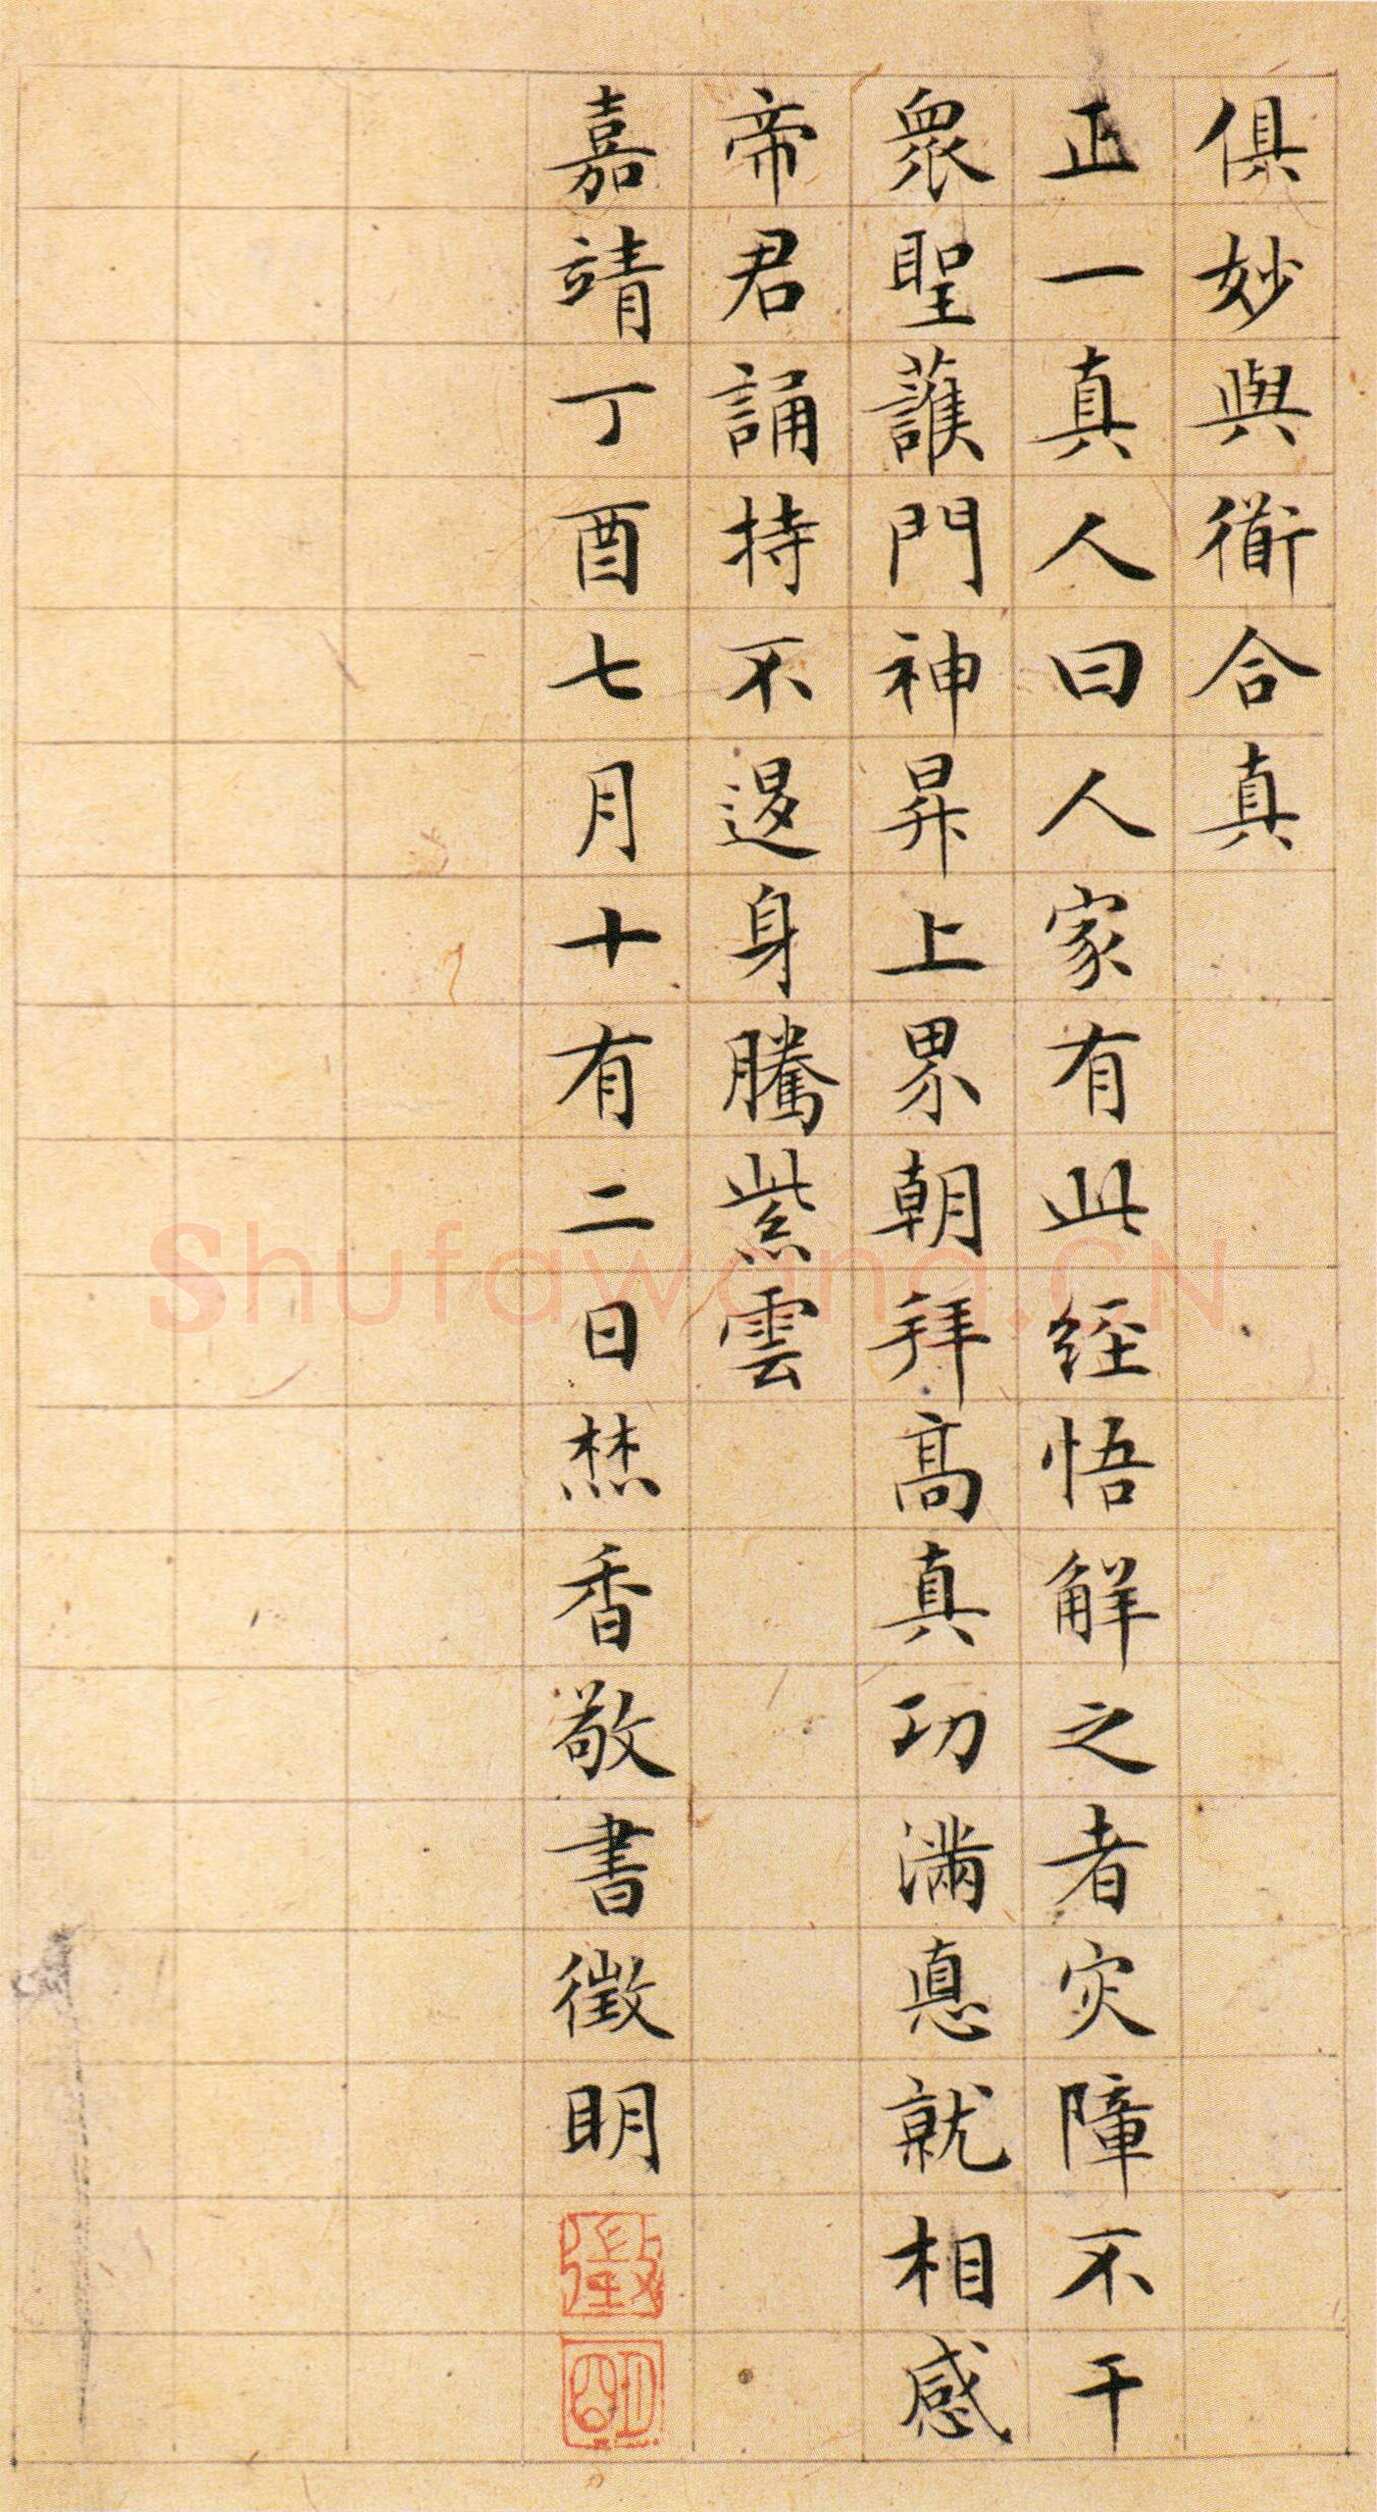 俱妙與衟合真
正一真人曰人家有此経悟解之者灾障不干
衆聖護門神昇上界朝拜髙真功滿悳就相感
帝君誦持不退身騰紫雲
嘉靖丁酉七月十有二日焚香敬書徵明
徵
明
Shufawang.CN